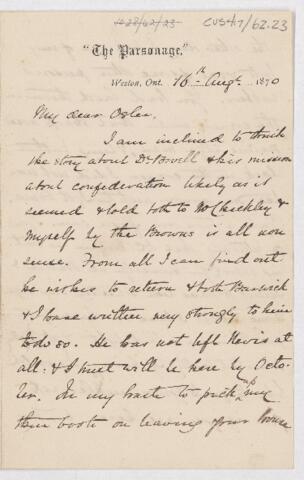 CUS417/62.23
"The Parsonage."
Weston, Ont. 16th Augt 1870
My dear Osler.
I am inclined to think
the story about Dr Bovell & his mission
about confederation likely as it
seemed & told both to Mr Checkley &
myself by the Browns is all non
sense. From all I can find out
he wishes to return & both Barwick
& I have written very strongly to him
to do so. He has not left Nevis at
all. & I trust will be here by Octo-
ber. In my haste to pick up my
then book on leaving your house